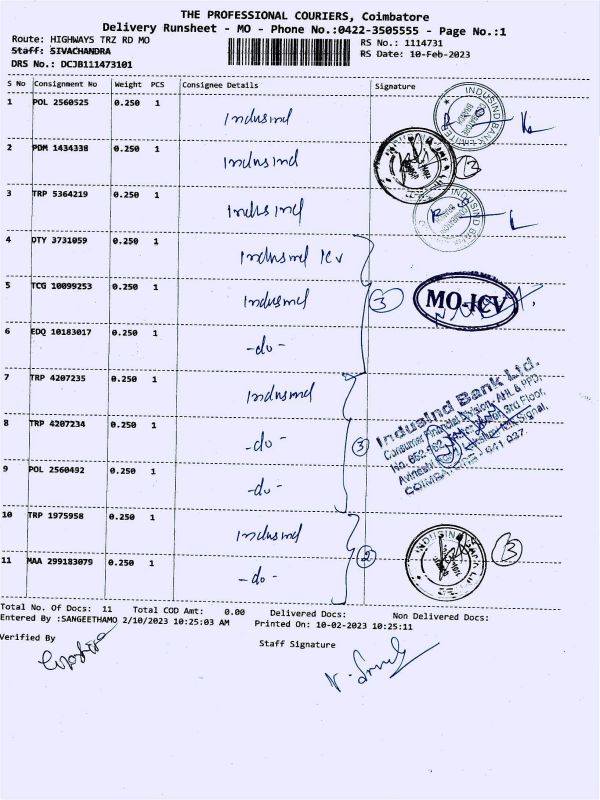 THE PROFESSIONAL COURIERS, Coimbatore
Delivery Runsheet - MO - Phone No.:0422-3505555 - Page No.:1
Route: HIGHWAYS TRZ RD MO
RS No.: 1114731
Staff: SIVACHANDRA
RS Date: 10-Feb-2023
DRS No.: DCJB111473101
S No Consignment No Weight PCS Consignee Details Signature
1 POL 2560525 0.250 1 Indusind
2 PDM 1434338 0.250 1 Indusind
3 TRP 5364219 0.250 1 Indusind
4 OTY 3731059 0.250 1 Indusind ICV
5 TCG 10099253 0.250 1 Indusind
3 MO-ICV
6 EDQ 10183017 0.250 1 -do-
7 TRP 4207235 0.250 1 Indusind
IndusInd Bank Ltd.
Consumer Financial Division, AHL & PPD,
3rd Floor,
Signal,
8 TRP 4207234 0.250 1 -do-
3
9 POL 2560492 0.250 1 -do-
10 TRP 1975958 0.250 1 Indusind
2
11 MAA 299183079 0.250 1 -do-
Total No. Of Docs: 11 Total COD Amt: 0.00 Delivered Docs: Non Delivered Docs:
Entered By :SANGEETHAMO 2/10/2023 10:25:03 AM Printed On: 10-02-2023 10:25:11
Verified By
Staff Signature